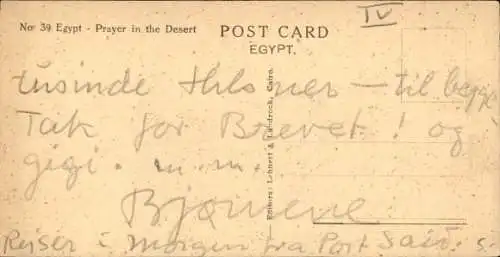 No. 39 Egypt - Prayer in the Desert
POST CARD
EGYPT.
IV
tusinde Hilsner — til begge
Tak for Brevet! og
gigi. m. m.
Bjørnene
Rejser i morgen fra Port Said. s.
Editors: Lehnert & Landrock, Cairo.